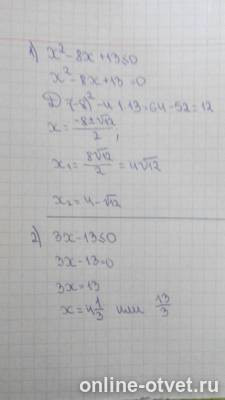 1) x² - 8x + 13 ≤ 0
x² - 8x + 13 = 0
D (-8)² - 4·1·13 = 64 - 52 = 12
x = (-8 ± √12)/2 ;
x₁ = 8√12/2 = 4√12
x₂ = 4 - √12
2) 3x - 13 ≤ 0
3x - 13 = 0
3x = 13
x = 4 1/3 или 13/3
online-otvet.ru